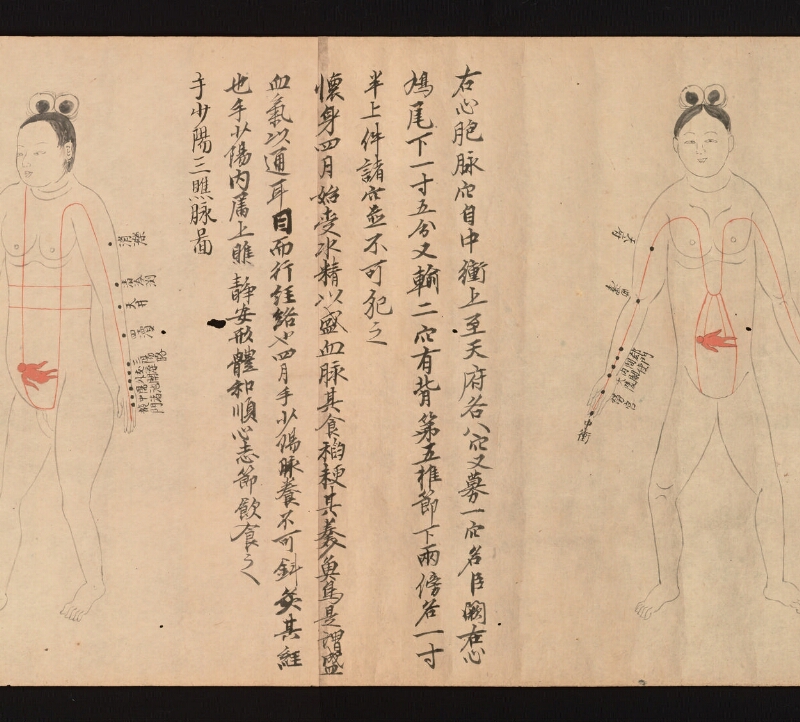 天府
曲澤
郄門
間使
內關
大陵
勞宮
中衝
右心胞脉穴自中衝上至天府各八穴又募一穴名巨闕在心
鳩尾下一寸五分又輸二穴有背第五椎節下兩傍各一寸
半上件諸穴並不可犯之
懷身四月始受水精以盛血脉其食稻粳其羹魚鳥是謂盛
血氣以通耳目而行經絡也四月手少陽脉養不可針灸其經
也手少陽內属上膲靜安形體和順心志節飲食之
手少陽三瞧脉啚
消濼
天井